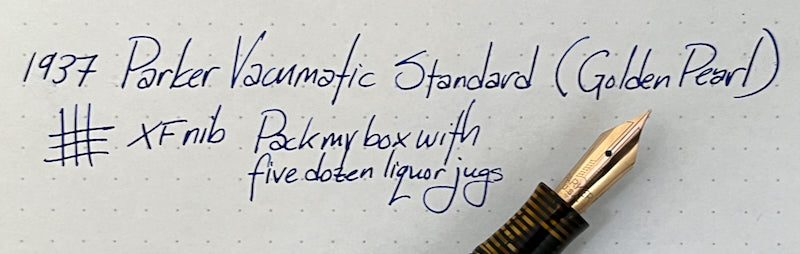 1937 Parker Vacumatic Standard (Golden Pearl)
XF nib Pack my box with
five dozen liquor jugs